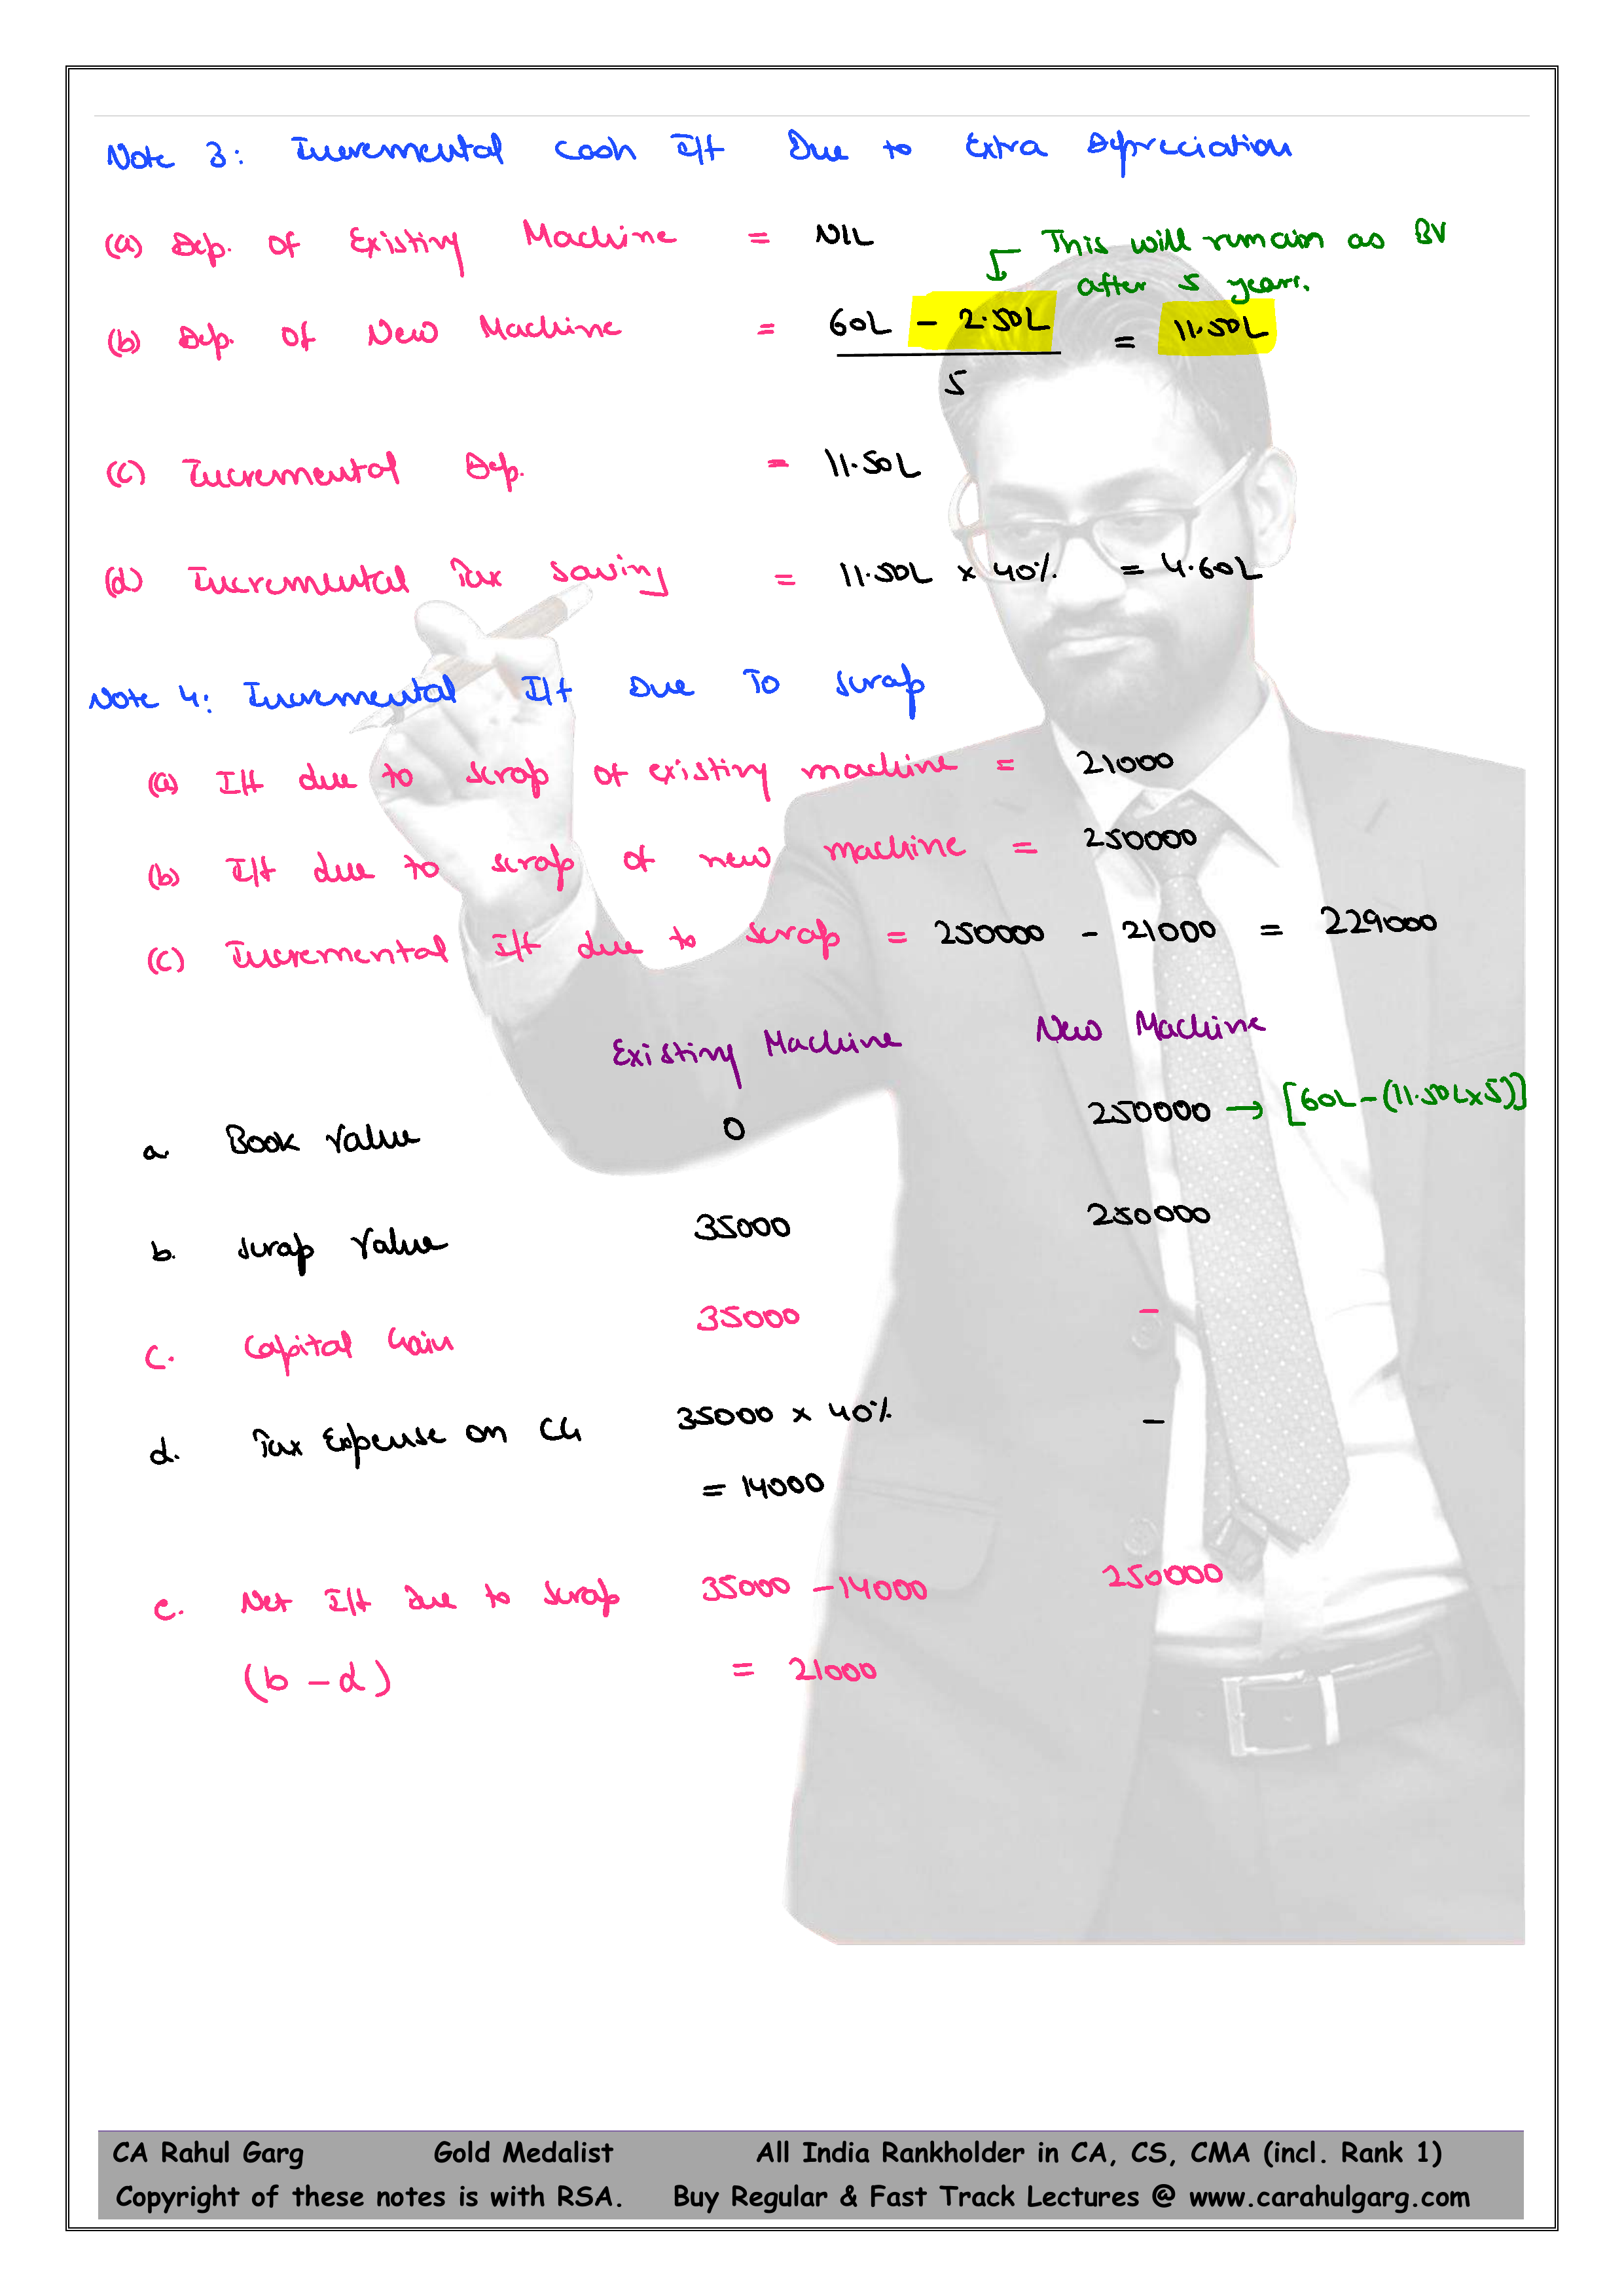 Note 3: Incremental Cash I/f Due to Extra Depreciation
(a) Dep. of Existing Machine = NIL
This will remain as BV
after 5 years.
(b) Dep. of New Machine = 60L - 2.50L = 11.50L
5
(c) Incremental Dep. = 11.50L
(d) Incremental Tax Saving = 11.50L x 40% = 4.60L
Note 4: Incremental I/f Due To Scrap
(a) I/f due to scrap of existing machine = 21000
(b) I/f due to scrap of new machine = 250000
(c) Incremental I/f due to scrap = 250000 - 21000 = 229000
Existing Machine New Machine
a. Book Value 0 250000 → [60L-(11.50Lx5)]
b. Scrap Value 35000 250000
c. Capital Gain 35000 -
d. Tax Expense on CG 35000 x 40% -
= 14000
e. Net I/f Due to Scrap 35000 - 14000 250000
(b - d) = 21000
CA Rahul Garg Gold Medalist All India Rankholder in CA, CS, CMA (incl. Rank 1)
Copyright of these notes is with RSA. Buy Regular & Fast Track Lectures @ www.carahulgarg.com